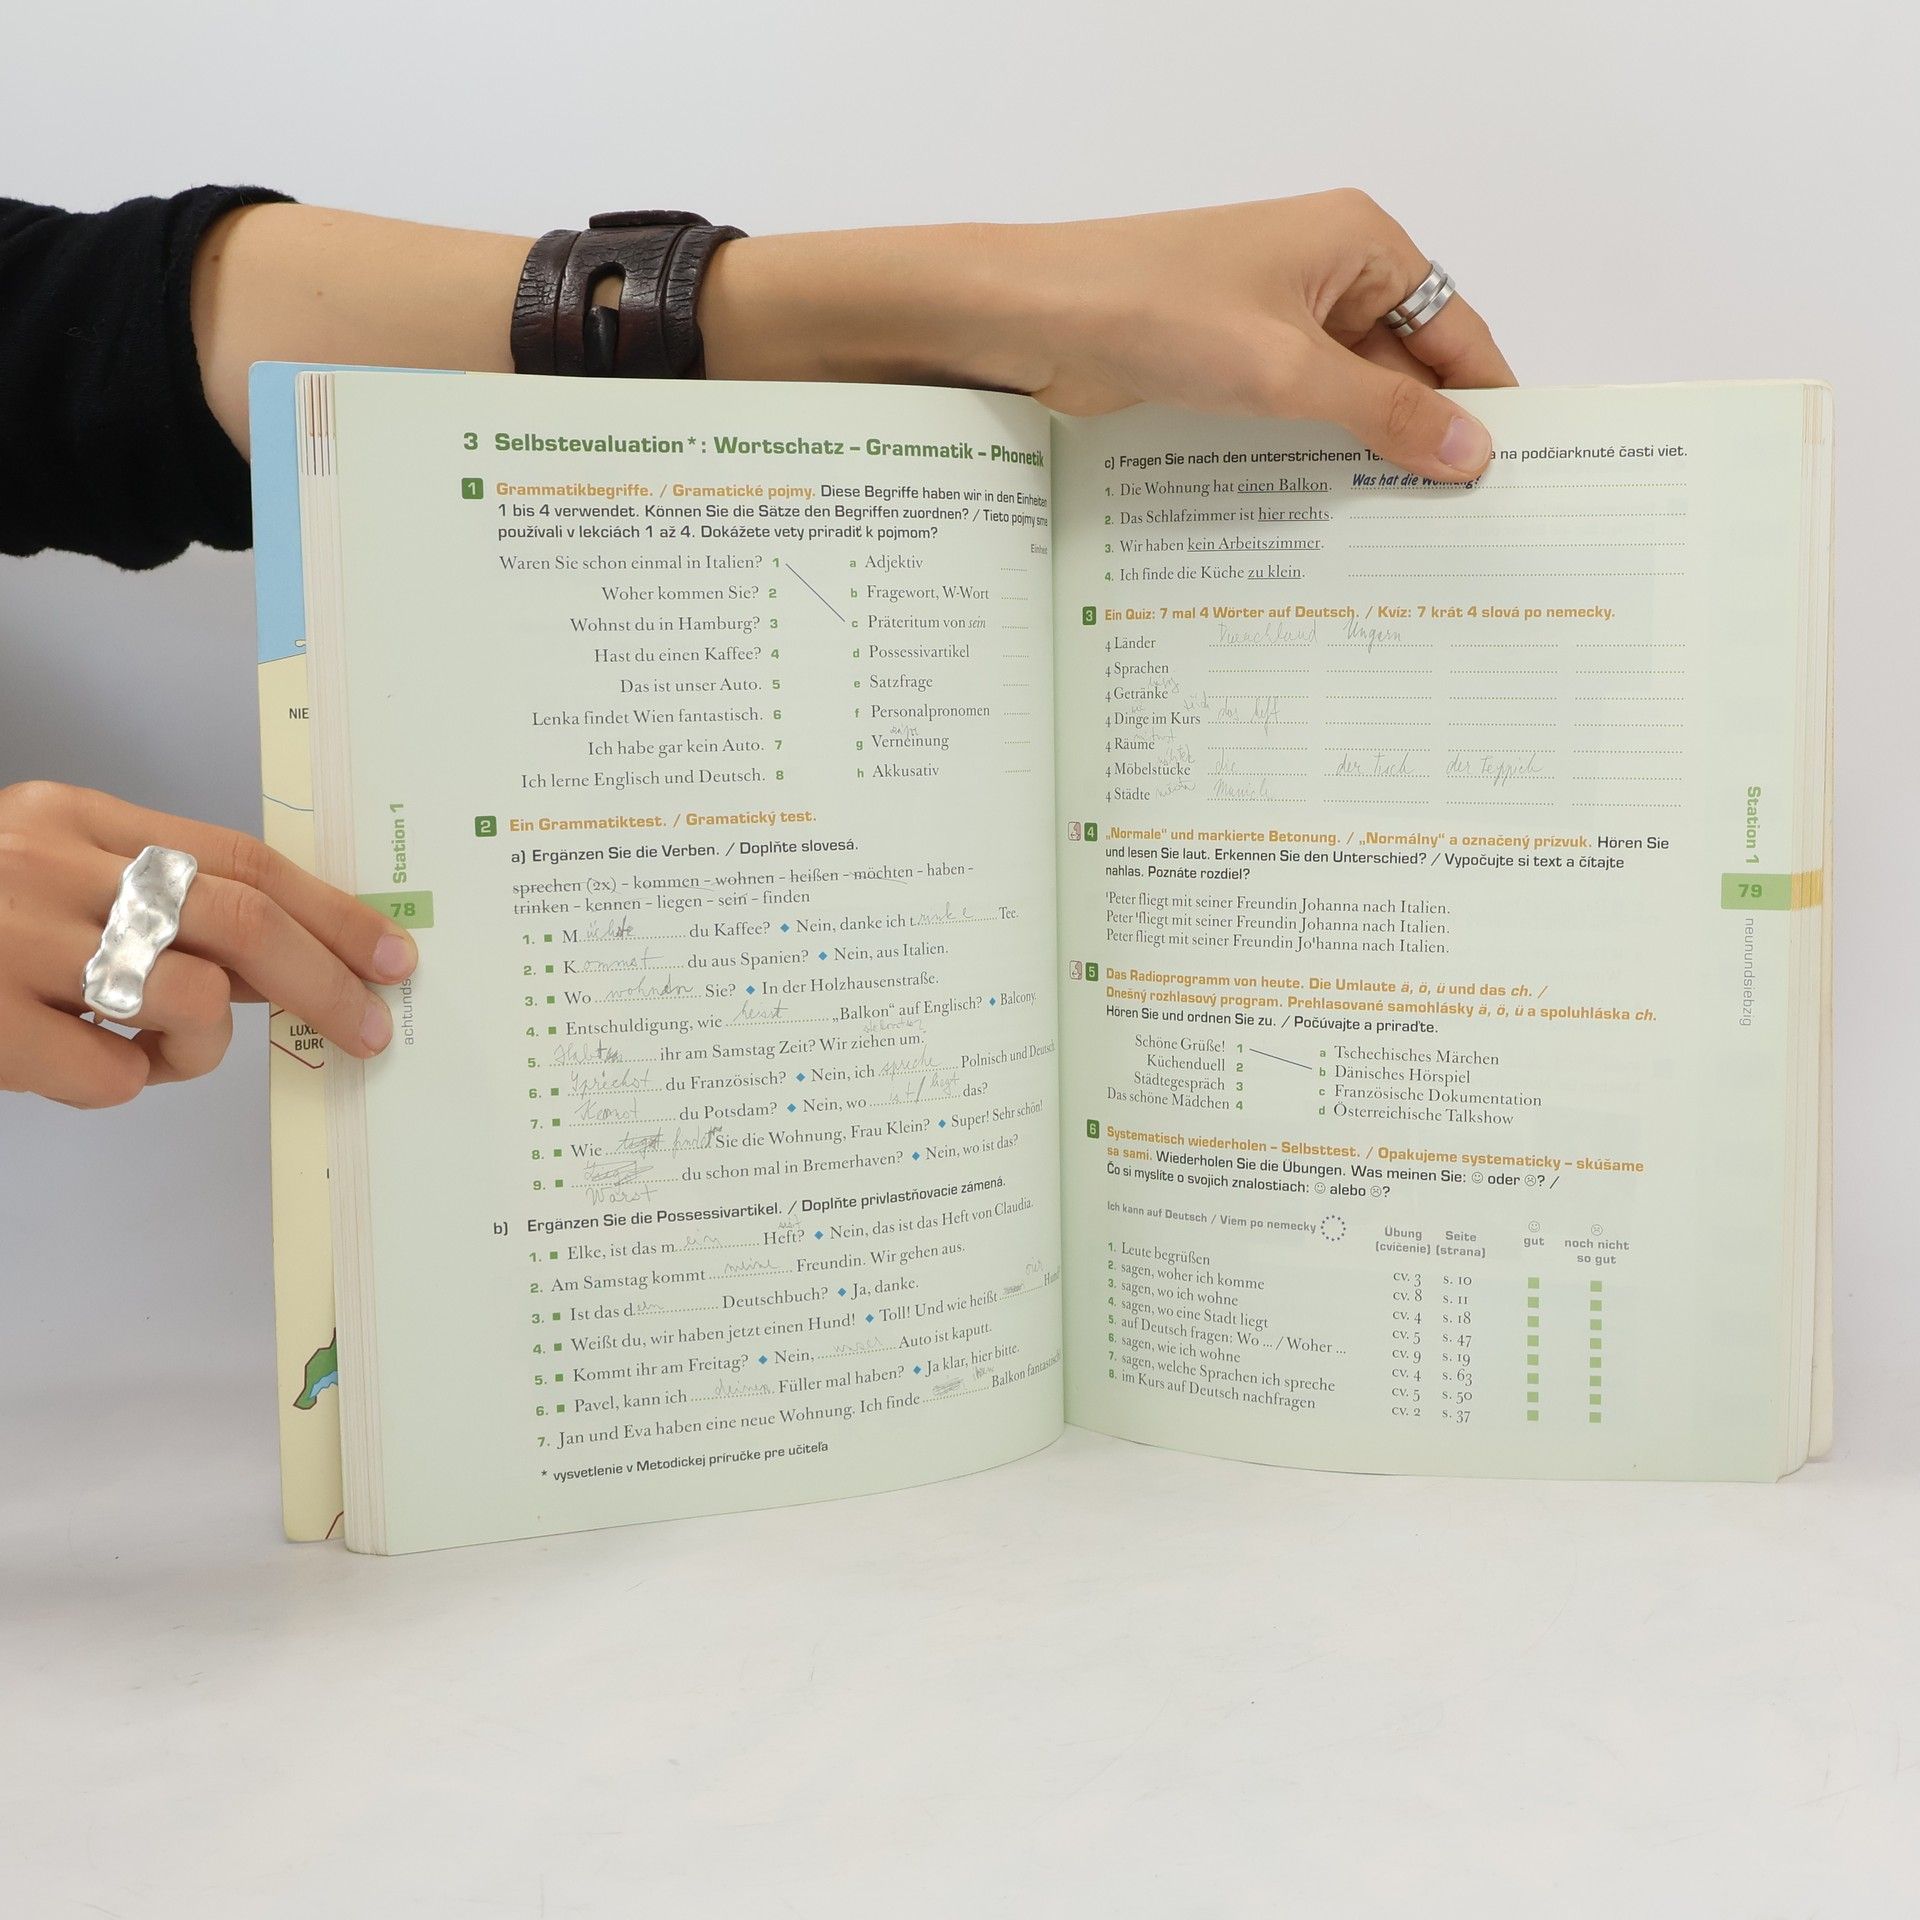 3 Selbstevaluation*: Wortschatz – Grammatik – Phonetik
1 Grammatikbegriffe. / Gramatické pojmy. Diese Begriffe haben wir in den Einheiten
1 bis 4 verwendet. Können Sie die Sätze den Begriffen zuordnen? / Tieto pojmy sme
používali v lekciách 1 až 4. Dokážete vety priradiť k pojmom?
Einheit
Waren Sie schon einmal in Italien? 1 a Adjektiv
Woher kommen Sie? 2 b Fragewort, W-Wort
Wohnst du in Hamburg? 3 c Präteritum von sein
Hast du einen Kaffee? 4 d Possessivartikel
Das ist unser Auto. 5 e Satzfrage
Lenka findet Wien fantastisch. 6 f Personalpronomen
Ich habe gar kein Auto. 7 g Verneinung
Ich lerne Englisch und Deutsch. 8 h Akkusativ
2 Ein Grammatiktest. / Gramatický test.
a) Ergänzen Sie die Verben. / Doplňte slovesá.
sprechen (2x) – kommen – wohnen – heißen – möchten – haben –
trinken – kennen – liegen – sein – finden
1. M öchte du Kaffee? Nein, danke ich t rinke Tee.
2. K ommst du aus Spanien? Nein, aus Italien.
3. Wo wohnen Sie? In der Holzhausenstraße.
4. Entschuldigung, wie heisst „Balkon“ auf Englisch? Balcony.
5. ihr am Samstag Zeit? Wir ziehen um.
6. Sprechst du Französisch? Nein, ich spreche Polnisch und Deutsch
7. Kennst du Potsdam? Nein, wo ist/ liegt das?
8. Wie Sie die Wohnung, Frau Klein? Super! Sehr schön!
9. du schon mal in Bremerhaven? Nein, wo ist das?
Warst
b) Ergänzen Sie die Possessivartikel. / Doplňte privlastňovacie zámená.
1. Elke, ist das m ein Heft? Nein, das ist das Heft von Claudia.
2. Am Samstag kommt meine Freundin. Wir gehen aus.
3. Ist das d ein Deutschbuch? Ja, danke.
4. Weißt du, wir haben jetzt einen Hund! Toll! Und wie heißt
5. Kommt ihr am Freitag? Nein, unser Auto ist kaputt.
6. Pavel, kann ich deinen Füller mal haben? Ja klar, hier bitte.
7. Jan und Eva haben eine neue Wohnung. Ich finde Balkon
* vysvetlenie v Metodickej príručke pre učiteľa
Station 1
78
achtunds
NIE
LUXE
BURG
c) Fragen Sie nach den unterstrichenen a na podčiarknuté časti viet.
1. Die Wohnung hat einen Balkon. Was hat die
2. Das Schlafzimmer ist hier rechts.
3. Wir haben kein Arbeitszimmer.
4. Ich finde die Küche zu klein.
3 Ein Quiz: 7 mal 4 Wörter auf Deutsch. / Kvíz: 7 krát 4 slová po nemecky.
4 Länder Ungarn
4 Sprachen
4 Getränke
4 Dinge im Kurs das heft
4 Räume
4 Möbelstücke die der Tisch der Teppich
4 Städte
4 „Normale“ und markierte Betonung. / „Normálny“ a označený prízvuk. Hören Sie
und lesen Sie laut. Erkennen Sie den Unterschied? / Vypočujte si text a čítajte
nahlas. Poznáte rozdiel?
'Peter fliegt mit seiner Freundin Johanna nach Italien.
Peter 'fliegt mit seiner Freundin Johanna nach Italien.
Peter fliegt mit seiner Freundin Jo'hanna nach Italien.
5 Das Radioprogramm von heute. Die Umlaute ä, ö, ü und das ch. /
Dnešný rozhlasový program. Prehlasované samohlásky ä, ö, ü a spoluhláska ch.
Hören Sie und ordnen Sie zu. / Počúvajte a priraďte.
Schöne Grüße! 1 a Tschechisches Märchen
Küchenduell 2 b Dänisches Hörspiel
Städtegespräch 3 c Französische Dokumentation
Das schöne Mädchen 4 d Österreichische Talkshow
6 Systematisch wiederholen – Selbsttest. / Opakujeme systematicky – skúšame
sa sami. Wiederholen Sie die Übungen. Was meinen Sie: ☺ oder ☹? /
Čo si myslíte o svojich znalostiach: ☺ alebo ☹?
Ich kann auf Deutsch / Viem po nemecky Übung (cvičenie) Seite (strana) ☺ gut ☹ noch nicht so gut
1. Leute begrüßen cv. 3 s. 10
2. sagen, woher ich komme cv. 8 s. 11
3. sagen, wo ich wohne cv. 4 s. 18
4. sagen, wo eine Stadt liegt cv. 5 s. 47
5. auf Deutsch fragen: Wo ... / Woher ... cv. 9 s. 19
6. sagen, wie ich wohne cv. 4 s. 63
7. sagen, welche Sprachen ich spreche cv. 5 s. 50
8. im Kurs auf Deutsch nachfragen cv. 2 s. 37
Station 1
79
neunundsiebzig